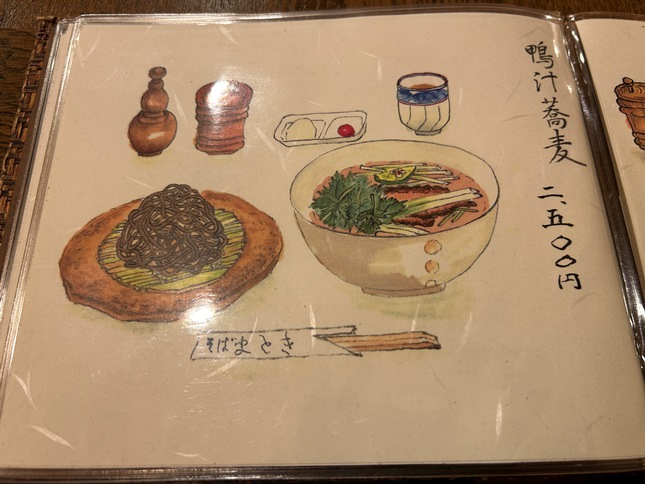 鴨汁蕎麦 二、五〇〇円
そばまとき